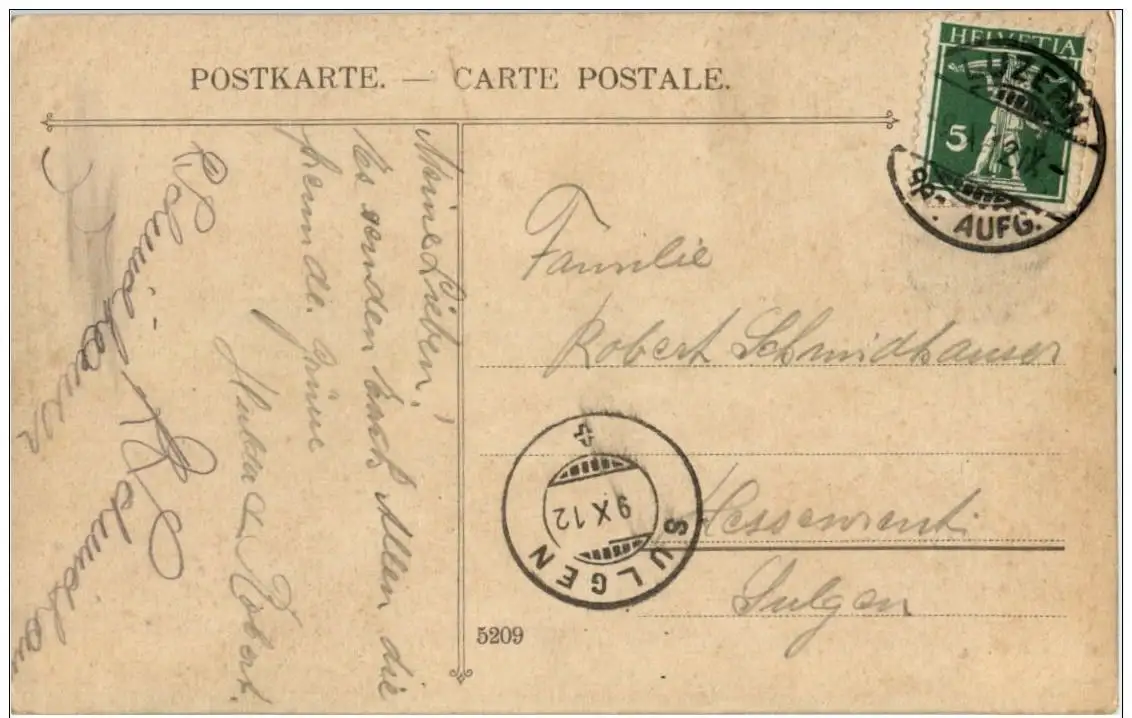 POSTKARTE. — CARTE POSTALE.
HELVETIA
5
LUZERN
12 IX
AUFG.
Meine Lieben!
Es senden Euch Allen die
Grüsse
& Robert.
R. Schmidhauser
R. Schmidhau
Familie
Robert Schmidhauser
Hessenreuti
Sulgen
SULGEN
9 X 12
5209